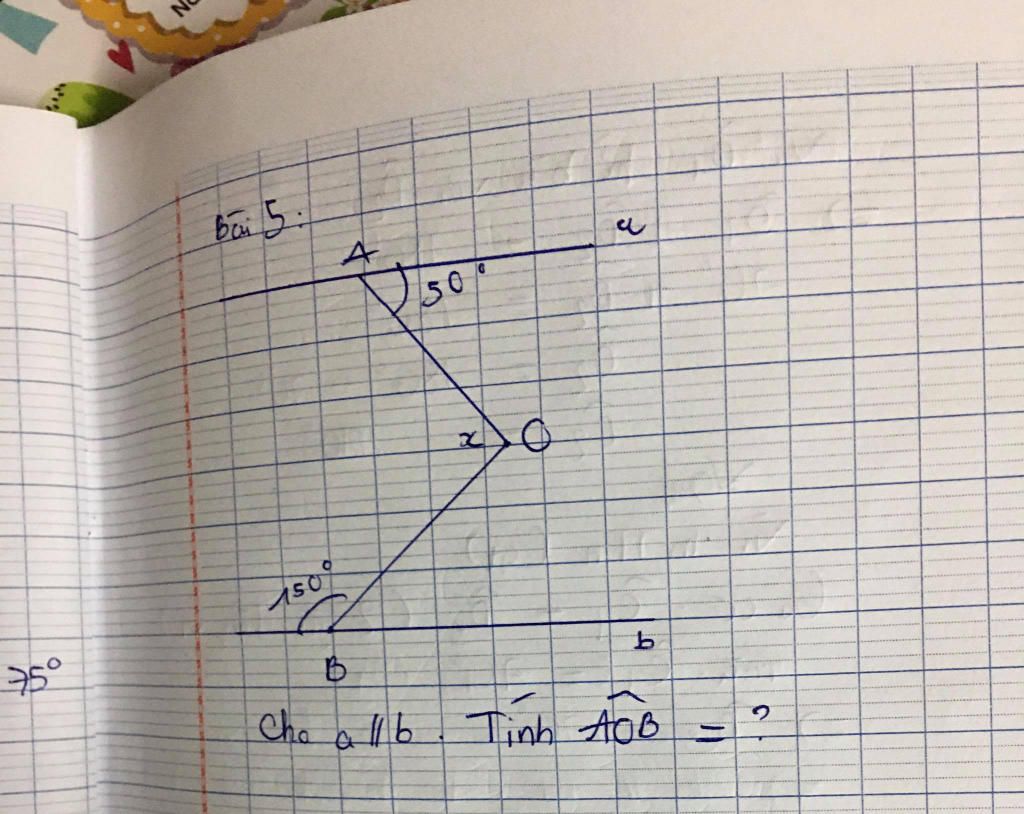 Bài 5:
A
a
50°
x
O
150°
B
b
75°
Cho a // b. Tính AOB = ?